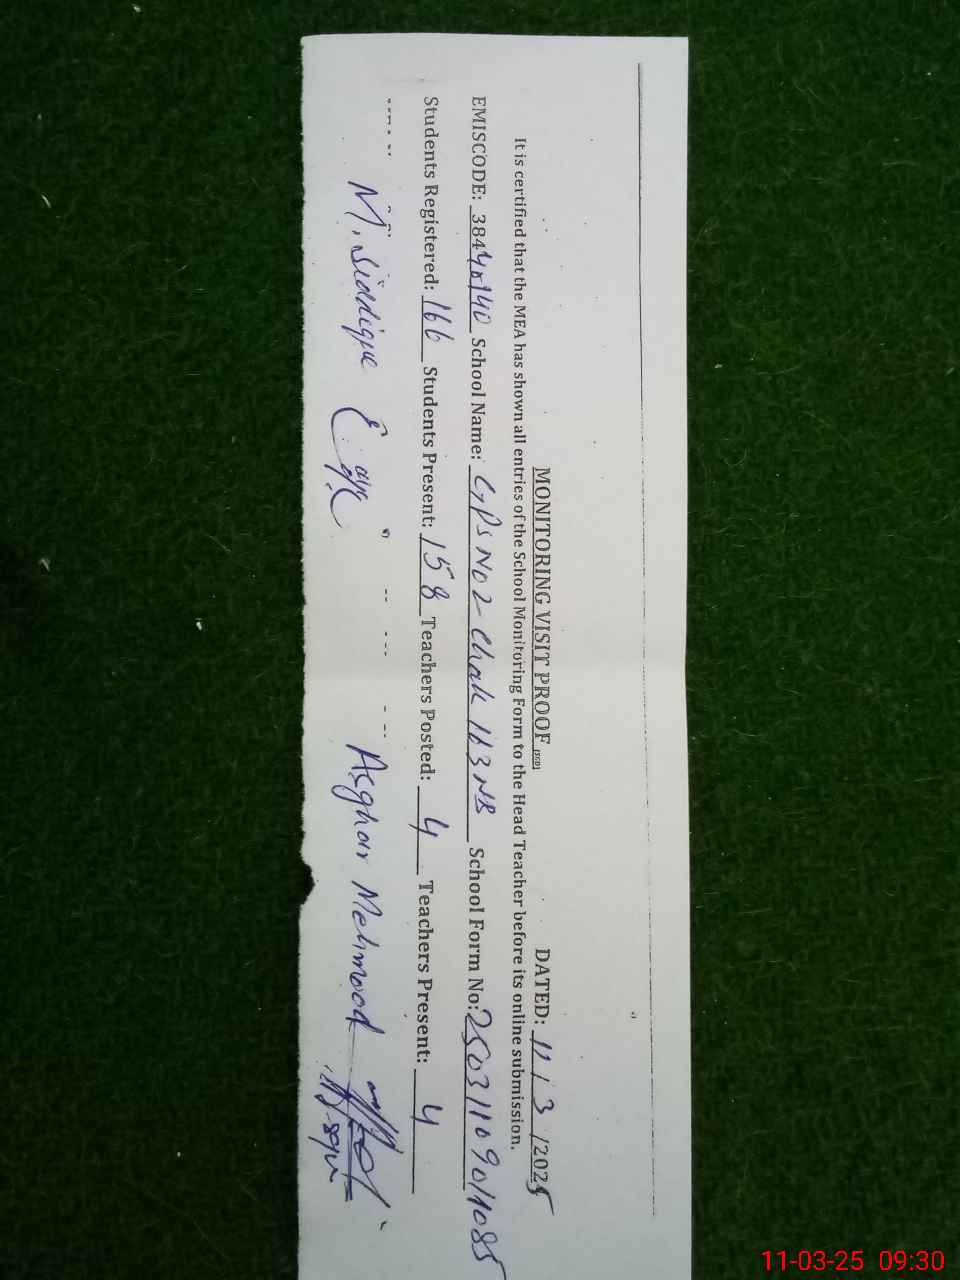 MONITORING VISIT PROOF (SSD) DATED: 11 / 3 /2025
It is certified that the MEA has shown all entries of the School Monitoring Form to the Head Teacher before its online submission.
EMISCODE: 38440140 School Name: GPS No 2 Chak 163 NB School Form No: 25031109011085
Students Registered: 166 Students Present: 158 Teachers Posted: 4 Teachers Present: 4
M. Siddique Asghar Mehmood
11-03-25 09:30